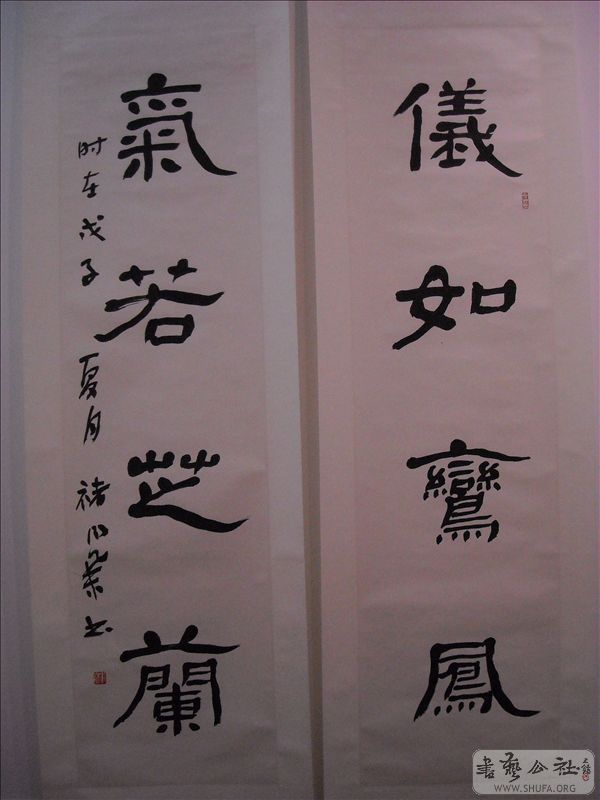 儀如鸞鳳
氣若芝蘭
时在戊子夏月
書藝公社
WWW.SHUFA.ORG